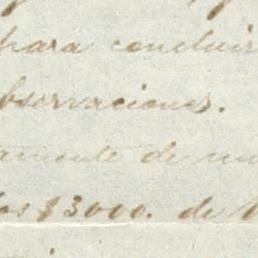 para concluir
bservaciones.
amente de
los $3000. de